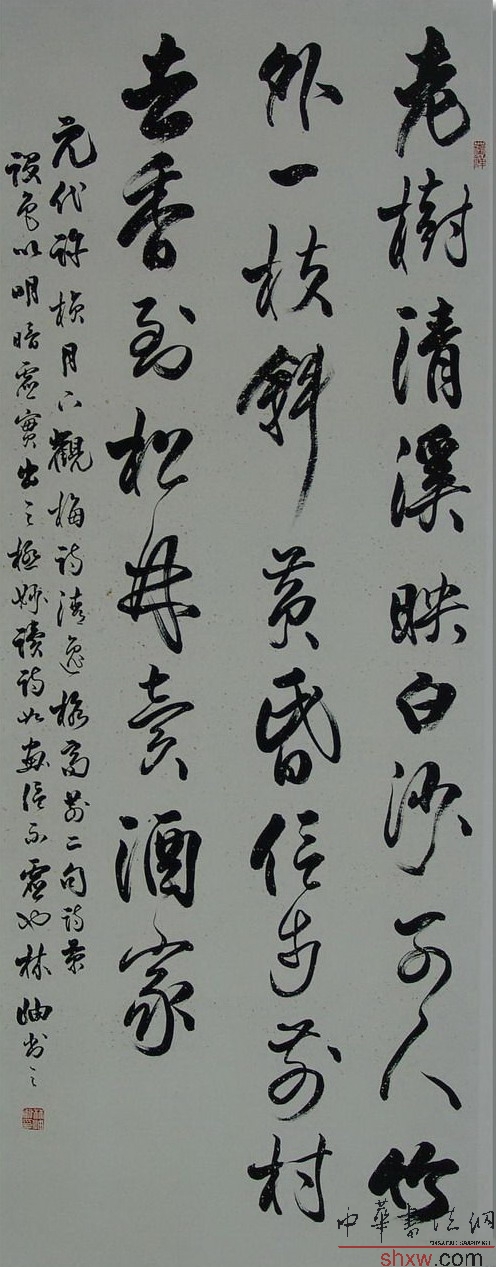 老樹清溪映白沙可人竹
外一枝斜黃昏信步前村
去香到松賣酒家
元代許楨月下觀梅詩清逸格高前二句詩景
設色以明暗虛實出之極妙讀詩如畫信不虛也林岫書之
中華書法網
shxw.com